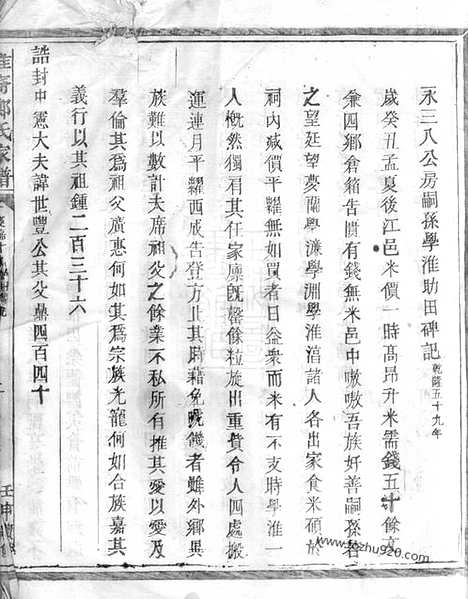 永三八公房嗣孫學淮助田碑記 乾隆五十九年
歲癸丑孟夏後江邑米價一時高昂升米需錢五十餘文
兼四鄉倉箱告匱有錢無米邑中嗷嗷吾族好善嗣孫若
之望延望夢蘭學濂學淵學淮清諸人各出家食米碩於
祠內減價平糶無如買者日益衆而米有不支時學淮一
人慨然獨肩其任家廪既罄餘粒旋出重貲令人四處搬
運連月平糶西成告登方止其時藉免饑者難外鄉異
族難以數計夫席祖父之餘業不私所有推其愛以愛及
羣倫其為祖父廣惠何如其為宗族光寵何如合族嘉其
義行以其祖鍾二百三十六
誥封中憲大夫諱世豐公其父鼎四百四十
鄭氏家譜
壬申
zhu920.com